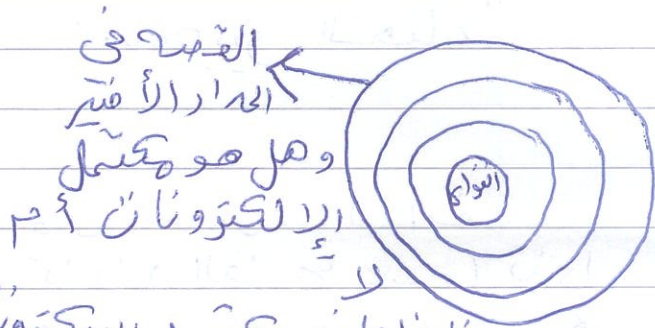 القصه فى
المدار الأخير
وهل هو مكتمل
الإلكترونات أم
لا
النواه